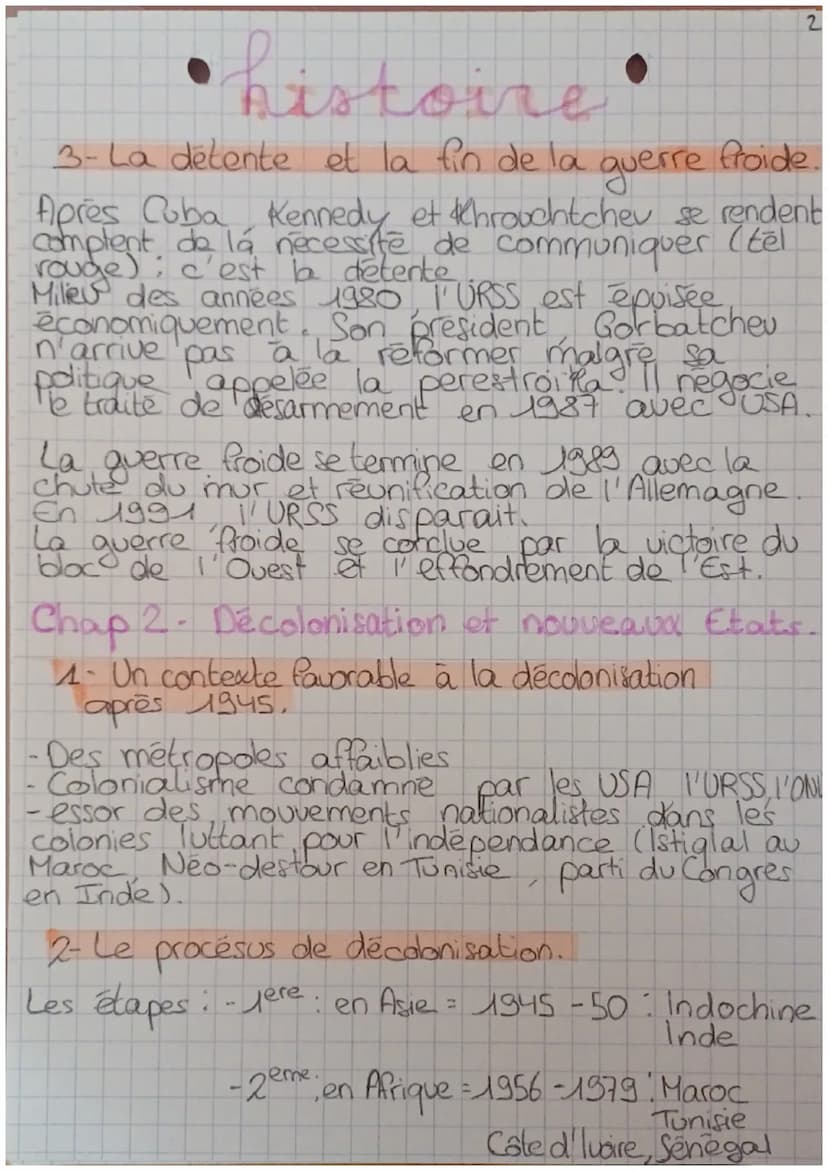 2
histoire
3- La détente et la fin de la guerre froide.
Après Cuba, Kennedy et Khrouchtchev se rendent
comptent de lá nécessité de communiquer (tél
rouge) ; c'est la détente.
Milieu des années 1980, l'URSS est épuisée
économiquement. Son président, Gorbatchev
n'arrive pas à la réformer malgré sa
politique appelée la perestroïka. Il négocie
le traité de désarmement en 1987 avec USA.
La guerre froide se termine en 1989 avec la
chute du mur et réunification de l'Allemagne.
En 1991, l'URSS disparait.
La guerre froide se conclue par la victoire du
bloc de l'Ouest et l'effondrement de l'Est.
Chap 2- Décolonisation et nouveaux Etats.
1- Un contexte favorable à la décolonisation
après 1945.
- Des métropoles affaiblies
- Colonialisme condamne par les USA, l'URSS, l'ONU
- essor des mouvements nationalistes dans les
colonies luttant pour l'indépendance (Istiglal au
Maroc, Néo-destour en Tunisie, parti du Congrès
en Inde).
2- Le procésus de décolonisation.
Les étapes : - 1ere : en Asie = 1945 - 50 : Indochine
Inde
- 2eme : en Afrique = 1956 - 1979 : Maroc
Tunisie
Côte d'Ivoire, Sénégal